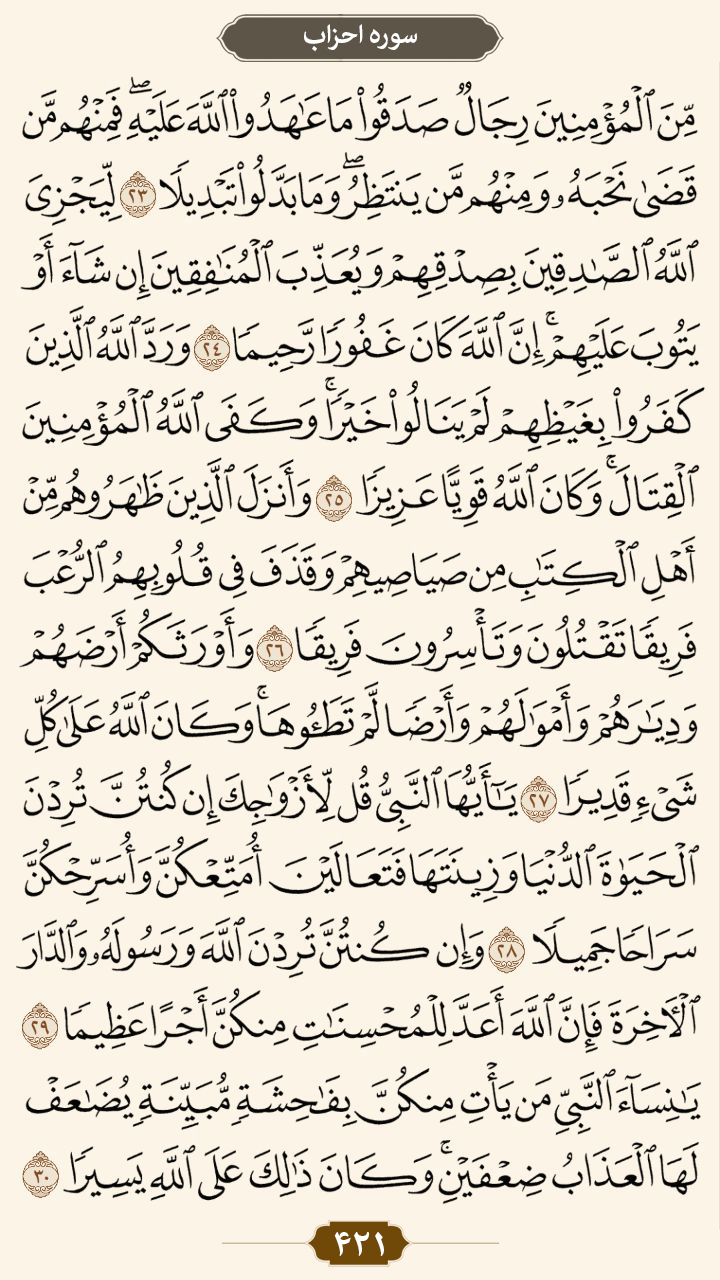 سوره احزاب
مِّنَ ٱلْمُؤْمِنِينَ رِجَالٌ صَدَقُوا۟ مَا عَـٰهَدُوا۟ ٱللَّهَ عَلَيْهِ ۖ فَمِنْهُم مَّن
قَضَىٰ نَحْبَهُۥ وَمِنْهُم مَّن يَنتَظِرُ ۖ وَمَا بَدَّلُوا۟ تَبْدِيلًا ٢٣ لِّيَجْزِىَ
ٱللَّهُ ٱلصَّـٰدِقِينَ بِصِدْقِهِمْ وَيُعَذِّبَ ٱلْمُنَـٰفِقِينَ إِن شَآءَ أَوْ
يَتُوبَ عَلَيْهِمْ ۚ إِنَّ ٱللَّهَ كَانَ غَفُورًا رَّحِيمًا ٢٤ وَرَدَّ ٱللَّهُ ٱلَّذِينَ
كَفَرُوا۟ بِغَيْظِهِمْ لَمْ يَنَالُوا۟ خَيْرًا ۚ وَكَفَى ٱللَّهُ ٱلْمُؤْمِنِينَ
ٱلْقِتَالَ ۚ وَكَانَ ٱللَّهُ قَوِيًّا عَزِيزًا ٢٥ وَأَنزَلَ ٱلَّذِينَ ظَـٰهَرُوهُم مِّنْ
أَهْلِ ٱلْكِتَـٰبِ مِن صَيَاصِيهِمْ وَقَذَفَ فِى قُلُوبِهِمُ ٱلرُّعْبَ
فَرِيقًا تَقْتُلُونَ وَتَأْسِرُونَ فَرِيقًا ٢٦ وَأَوْرَثَكُمْ أَرْضَهُمْ
وَدِيَـٰرَهُمْ وَأَمْوَٰلَهُمْ وَأَرْضًا لَّمْ تَطَـُٔوهَا ۚ وَكَانَ ٱللَّهُ عَلَىٰ كُلِّ
شَىْءٍ قَدِيرًا ٢٧ يَـٰٓأَيُّهَا ٱلنَّبِىُّ قُل لِّأَزْوَٰجِكَ إِن كُنتُنَّ تُرِدْنَ
ٱلْحَيَوٰةَ ٱلدُّنْيَا وَزِينَتَهَا فَتَعَالَيْنَ أُمَتِّعْكُنَّ وَأُسَرِّحْكُنَّ
سَرَاحًا جَمِيلًا ٢٨ وَإِن كُنتُنَّ تُرِدْنَ ٱللَّهَ وَرَسُولَهُۥ وَٱلدَّارَ
ٱلْـَٔاخِرَةَ فَإِنَّ ٱللَّهَ أَعَدَّ لِلْمُحْسِنَـٰتِ مِنكُنَّ أَجْرًا عَظِيمًا ٢٩
يَـٰنِسَآءَ ٱلنَّبِىِّ مَن يَأْتِ مِنكُنَّ بِفَـٰحِشَةٍ مُّبَيِّنَةٍ يُضَـٰعَفْ
لَهَا ٱلْعَذَابُ ضِعْفَيْنِ ۚ وَكَانَ ذَٰلِكَ عَلَى ٱللَّهِ يَسِيرًا ٣٠
۴۲۱